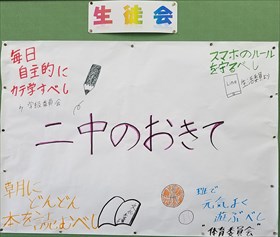 生徒会
毎日
自主的に
カ学すべし
スマホのルール
を守るべし
二中のおきて
朝に
どんどん
本を読むべし
元気よく
遊ぶべし
体育委員会